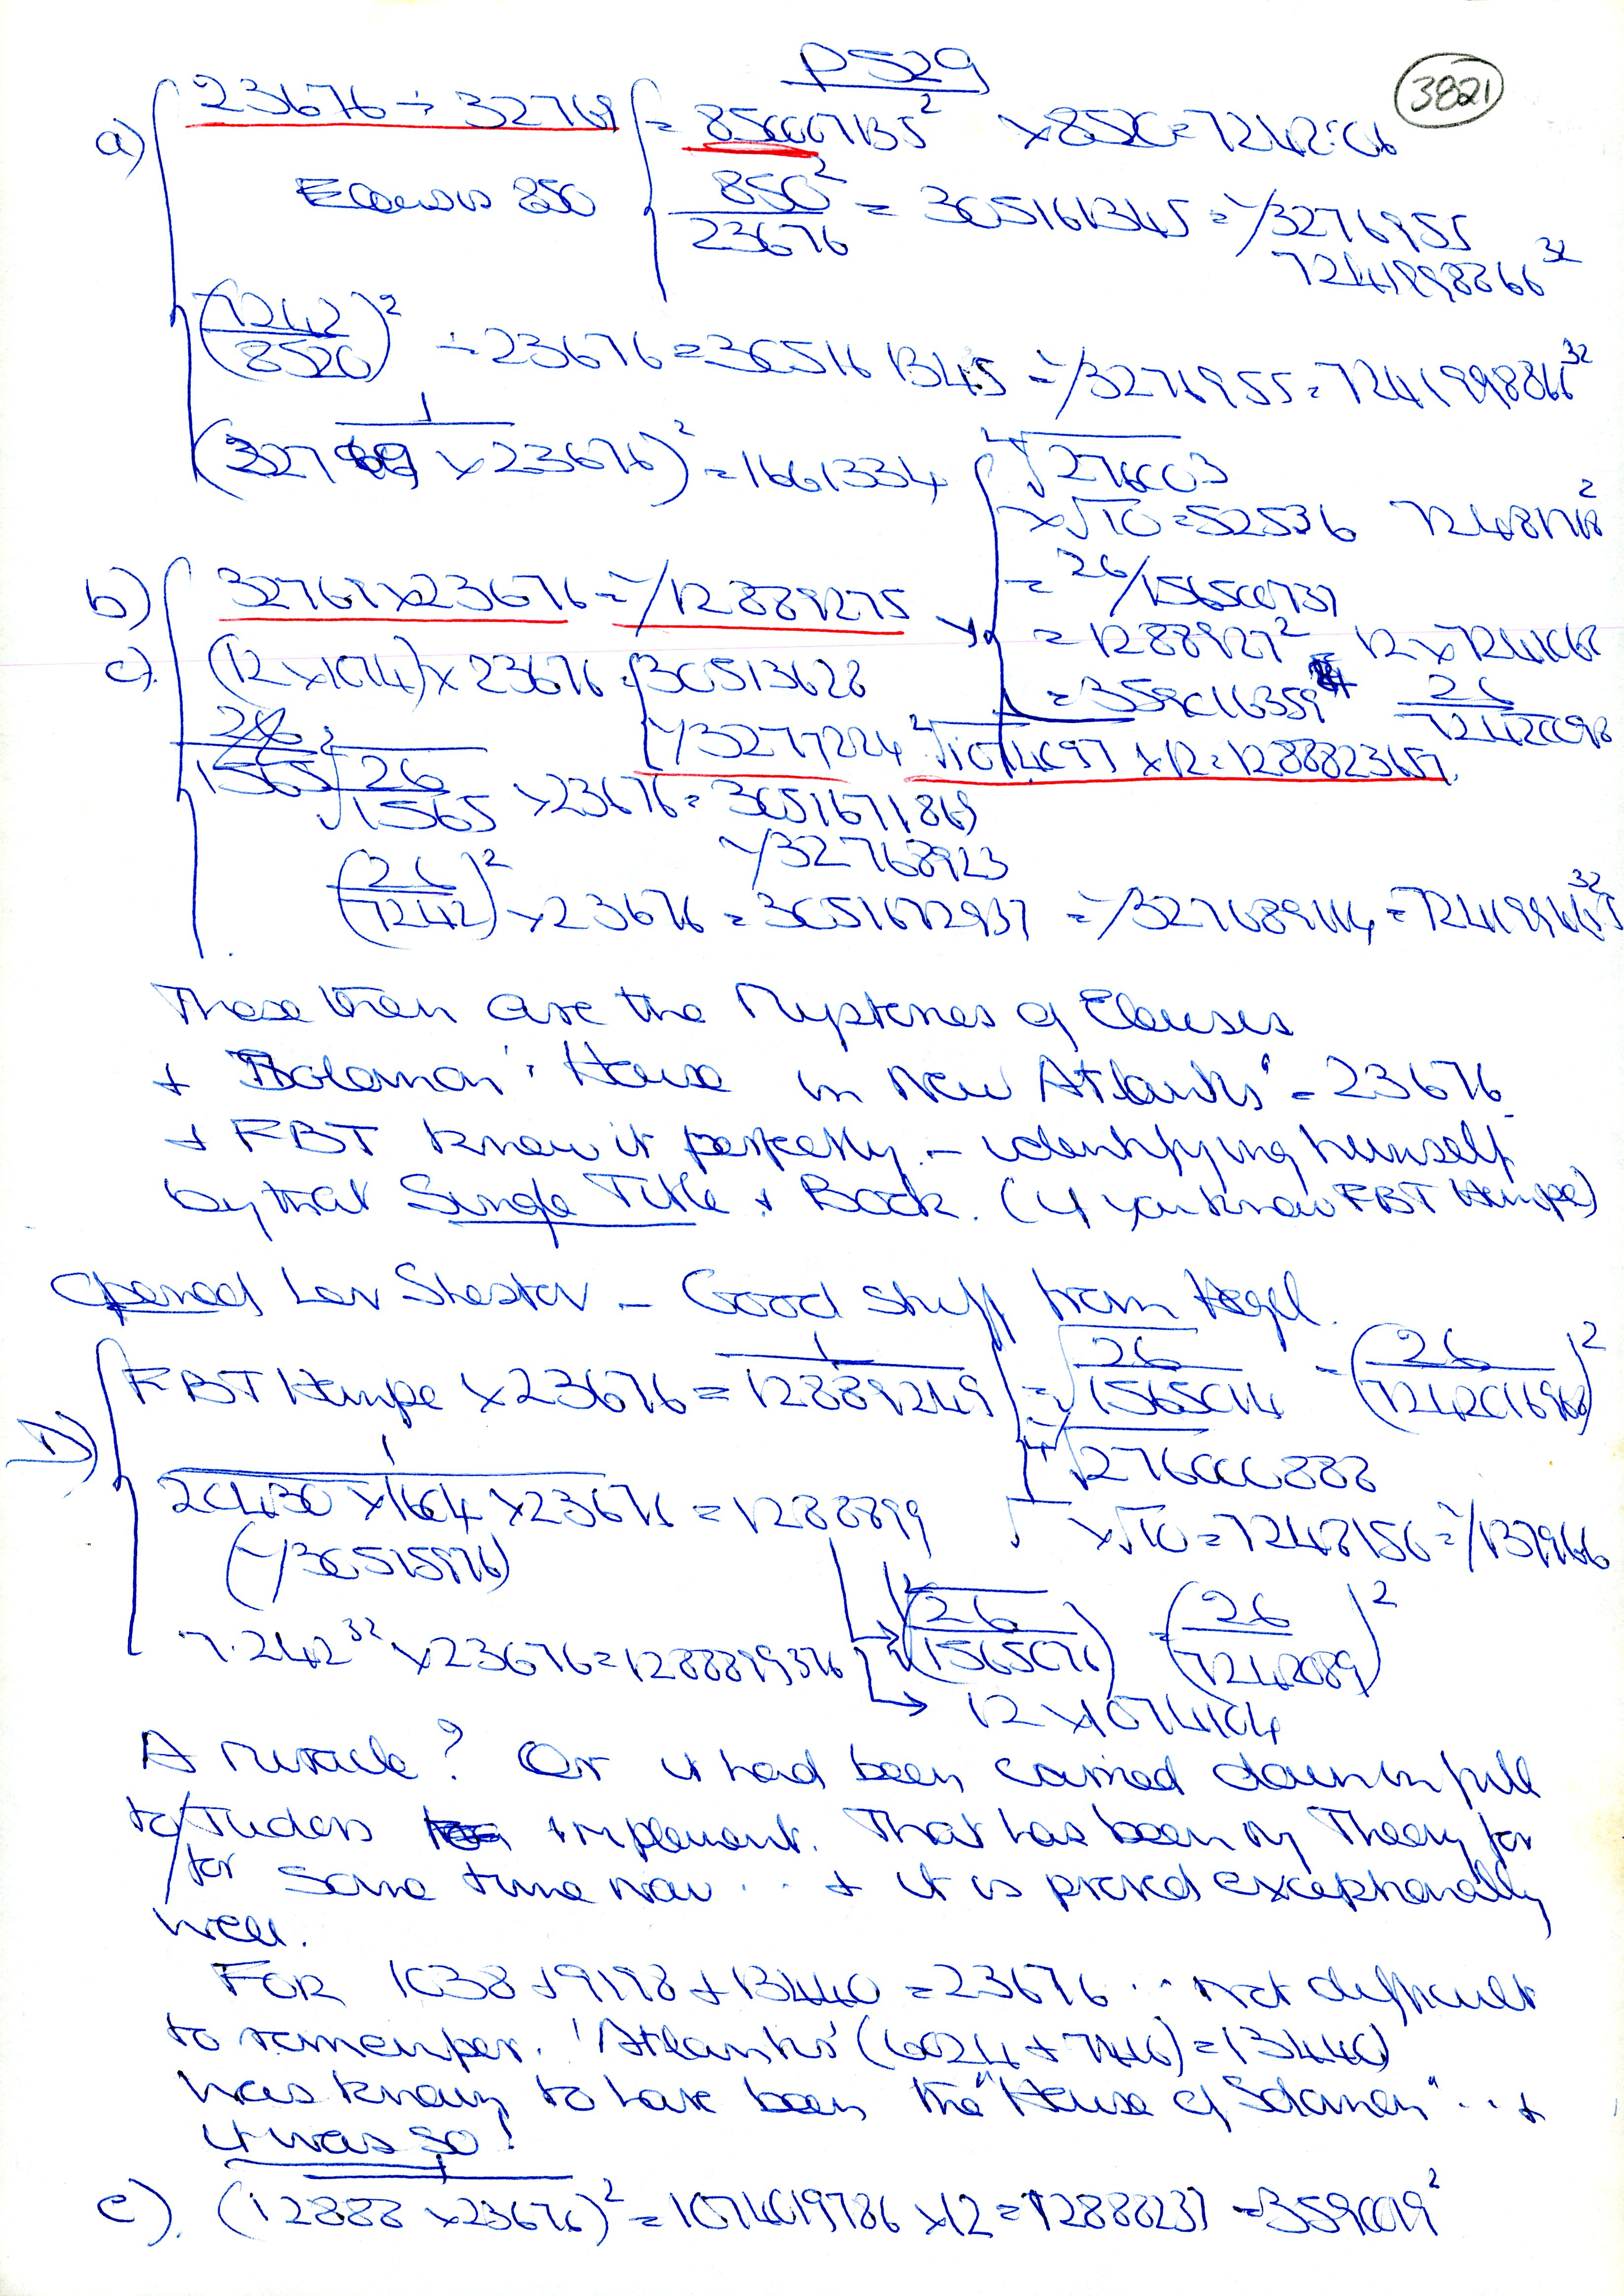 P529
3821
a) 23676 ÷ 32769 = 850007135² × 8520 = 7242.01
Eleusis 850 850²/23676 = 305161345 = -/3276955
7241998866³²
(7242/8520)² ÷ 23676 = 3051613415 = -/3276955 = 7241998866³²
1/(32769 × 23676)² = 1661334 ²√276003
×√10 = 52536 7248178²
b) 32767 × 23676 = -/12889275 = 26/156500737
= 1288927² = 12 × 7241068
c). (12 × 1074) × 23676 30513628 = 359016359 26/72420098
-/3277224 ²√1074097 × 12 = 1288823657.
²√26/1565 × 23676 = 3051671869
-/32768923
(26/7242)² × 23676 = 3051672937 = -/327689114
These then are the Mysteries of Eleusis
+ Solomon's House in New Atlantis' = 23676
+ FBT knew it perfectly. – identifying himself
by that Single Title + Book. (if you know FBT Hempe)
Opened Lev Shestov – Good stuff from Hegel.
D) FBT Hempe × 23676 = 1/12889249 = √26/1565014 = (26/)²
⁴√276000888
1/20430 × 1604 × 23676 = 1288899 √ ×√10 = 7248156 = -/137966
(-/30515976)
7.242³² × 23676 = 1288899376 (26/1565076) (26/7242089)²
12 × 1074104
A Miracle? Or it had been carried down in full
to Tudors implement. That has been my Theory for
for some time now... + it is proved exceptionally
well.
FOR 1038 + 9198 + 13440 = 23676 .. not difficult
to remember. 'Atlantis' (6024 + 7416) = 13440
was known to have been the "House of Solomon" .. +
it was so!
e). 1/(12888 × 23676)² = 1074019786 × 12 = 1288237 = 3590019²